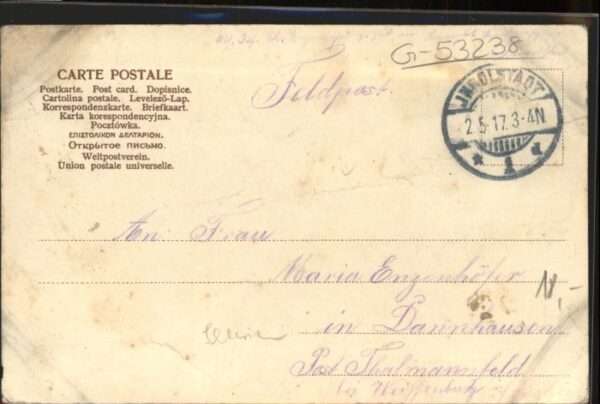 G-53238
CARTE POSTALE
Postkarte. Post card. Dopisnice.
Cartolina postale. Levelező-Lap.
Korrespondenzkarte. Briefkaart.
Karta korespondencyjna.
Pocztówka.
ΕΠΙΣΤΟΛΙΚΟΝ ΔΕΛΤΑΡΙΟΝ.
Открытое письмо.
Weltpostverein.
Union postale universelle.
Feldpost.
INGOLSTADT
2.5.17. 3-4N
1
An Frau
Maria Enzenhöfer
in Dannhausen
Post Thalmannsfeld
bei Weißenburg